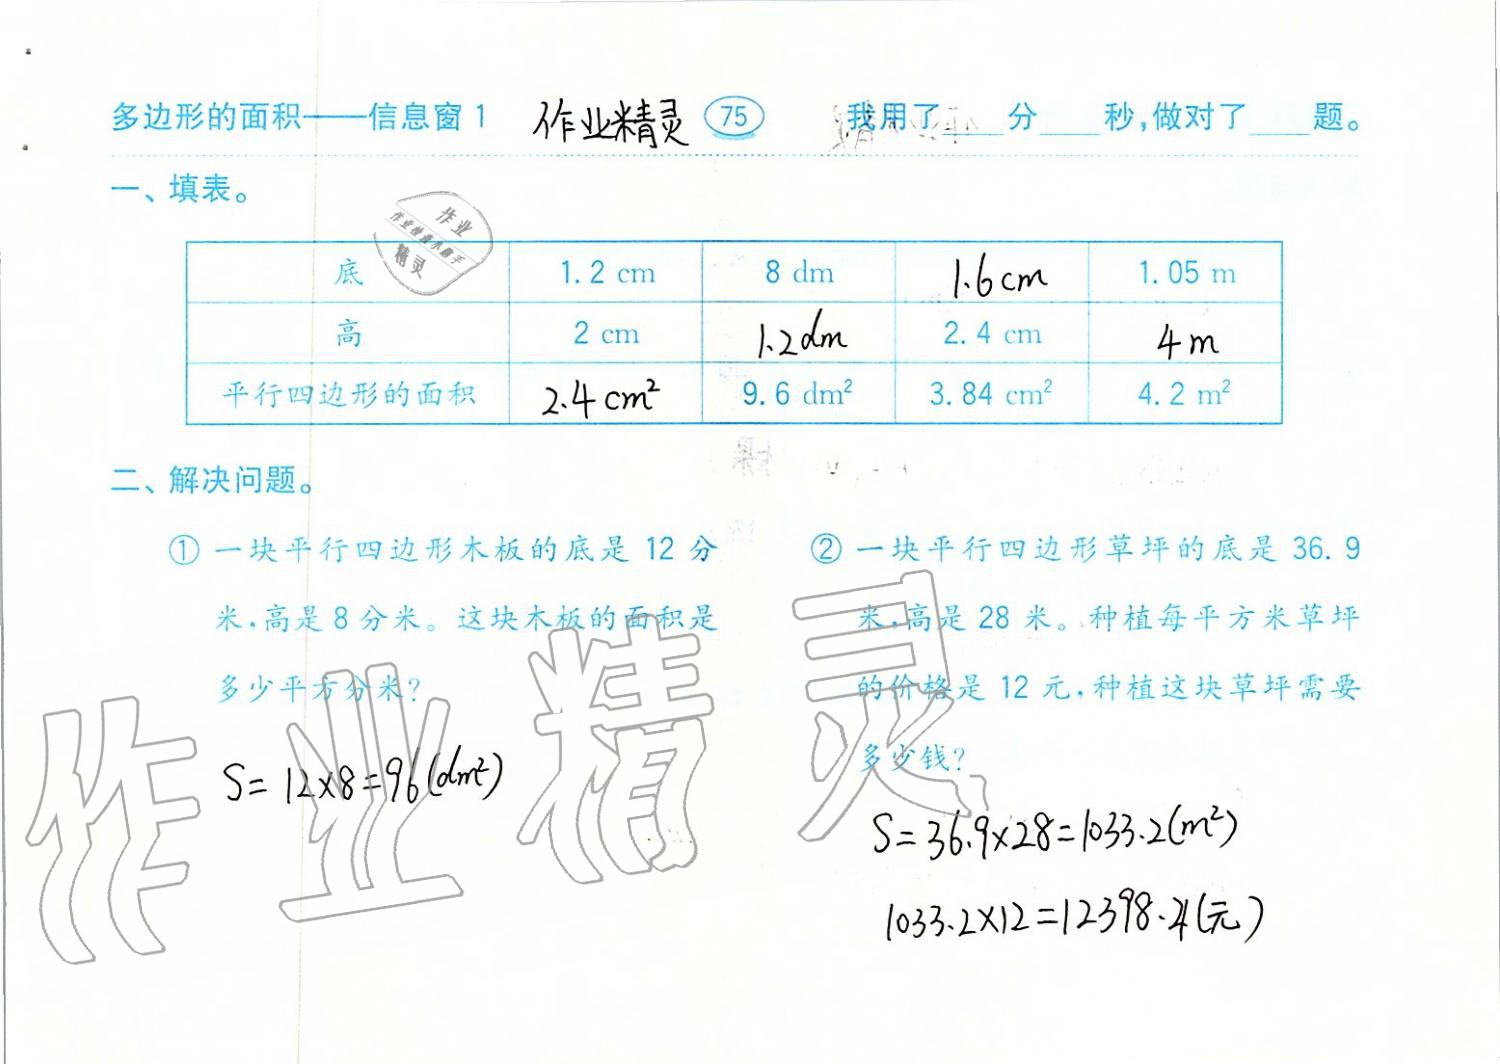 多边形的面积——信息窗1 作业精灵 75 我用了____分____秒,做对了____题。
一、填表。
作业
作业检查小助手
精灵
底 1.2 cm 8 dm 1.6cm 1.05 m
高 2 cm 1.2dm 2.4 cm 4m
平行四边形的面积 2.4cm² 9.6 dm² 3.84 cm² 4.2 m²
二、解决问题。
① 一块平行四边形木板的底是 12 分
米,高是 8 分米。这块木板的面积是
多少平方分米?
S=12×8=96(dm²)
② 一块平行四边形草坪的底是 36.9
米,高是 28 米。种植每平方米草坪
的价格是 12 元,种植这块草坪需要
多少钱?
S=36.9×28=1033.2(m²)
1033.2×12=12398.4(元)
作业精灵